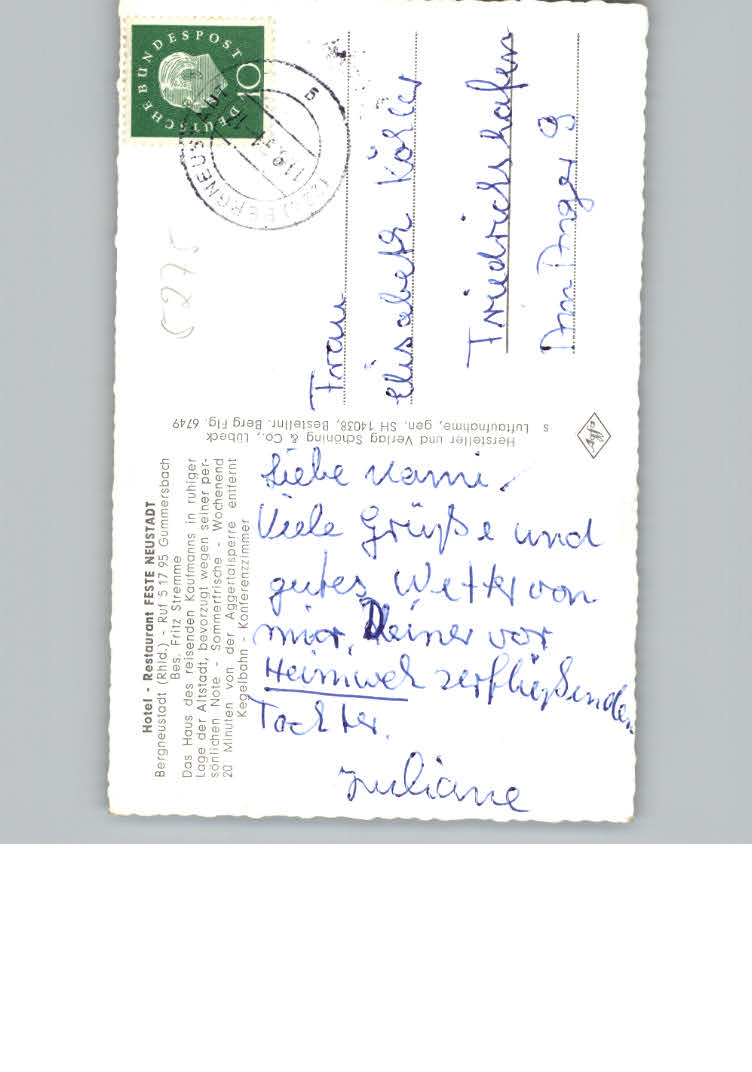 Hotel - Restaurant FESTE NEUSTADT
Bergneustadt (Rhld.) - Ruf 5 17 95 Gummersbach
Bes. Fritz Stremme
Das Haus des reisenden Kaufmanns in ruhiger
Lage der Altstadt, bevorzugt wegen seiner per-
sönlichen Note - Sommerfrische - Wochenend
20 Minuten von der Aggertalsperre entfernt
Kegelbahn - Konferenzzimmer
Liebe Mami,
Viele Grüße und
gutes Wetter von
mir, Deiner vor
Heimweh zerfließenden
Tochter.
Juliane
Hersteller und Verlag Schöning & Co., Lübeck
s Luftaufnahme, gen. SH 14038, Bestellnr. Berg Flg. 6749
Agfa
DEUTSCHE BUNDESPOST
10
BERGNEUSTADT
B
Frau
Elisabeth Köhler
Friedrichshafen
Am Anger 9